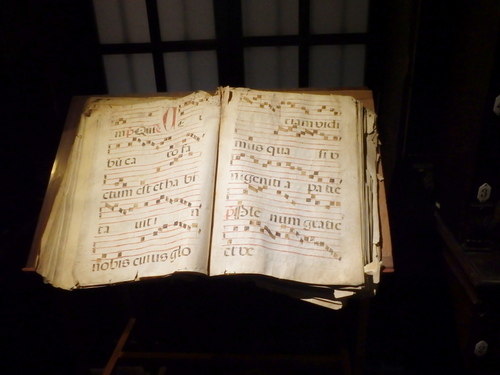 bu ca
ctum est et ha bi
ta vit i n
nobis cuius glo
ciam vidi
mus qua si v
nigeniti a patre
num gratie
et ve